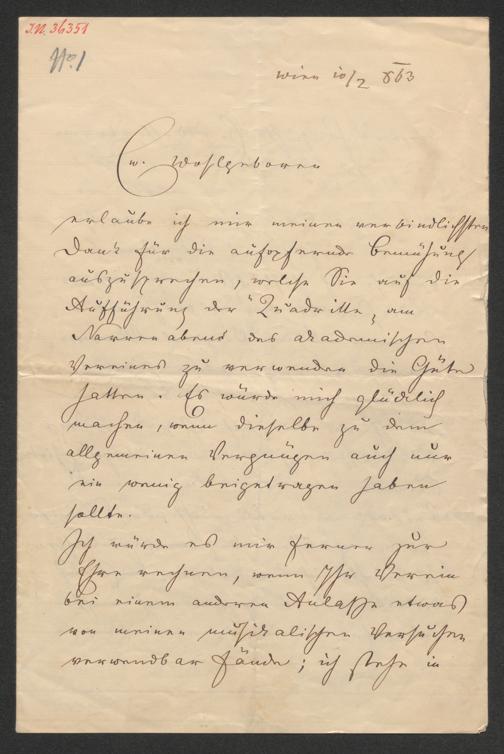 I.N. 36351
No. 1
Wien 10/2 863
Ew. Wohlgeboren
erlaube ich mir meinen verbindlichsten
Dank für die aufopfernde Bemühung
auszusprechen, welche Sie auf die
Aufführung der "Quadrille" am
Narrenabend des akademischen
Vereines zu verwenden die Güte
hatten. Es würde mich glücklich
machen, wenn dieselbe zu dem
allgemeinen Vergnügen auch nur
ein wenig beigetragen haben
sollte.
Ich würde es mir ferner zur
Ehre rechnen, wenn Ihr Verein
bei einem anderen Anlaße etwas
von meinen musikalischen Versuchen
verwendbar fände; ich stehe in